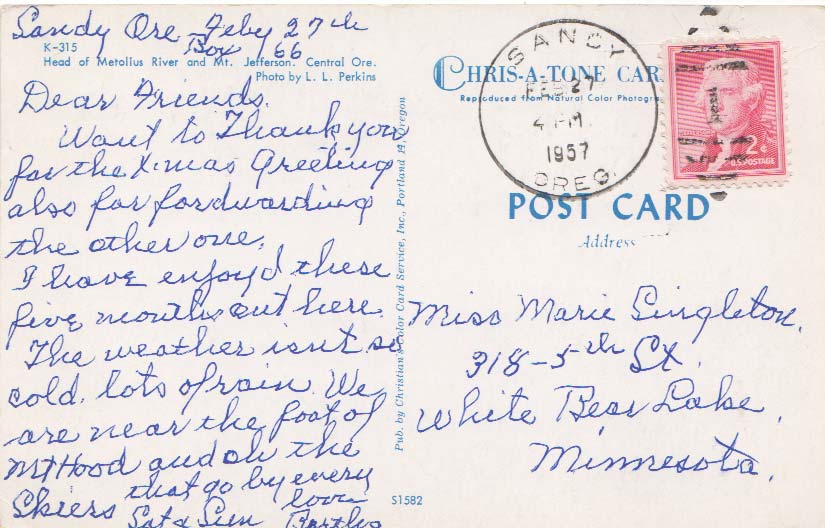 Sandy Ore Feby 27th
Box 66
K-315
Head of Metolius River and Mt. Jefferson. Central Ore.
Photo by L. L. Perkins
Dear Friends.
Want to Thank you
for the Xmas Greeting
also for fordwarding
the other one.
I have enjoyd these
five months out here.
The weather isn't so
cold. lots of rain. We
are near the foot of
Mt Hood and oh the
Skiers that go by every
Sat & Sun
love
Pub. by Christian's Color Card Service, Inc., Portland 14, Oregon
CHRIS-A-TONE CAR
Reproduced from Natural Color Photogra
SANDY
FEB 27
4 PM
1957
OREG.
2¢
U.S. POSTAGE
POST CARD
Address
Miss Marie Singleton.
318-5th St.
White Bear Lake.
Minnesota.
S1582